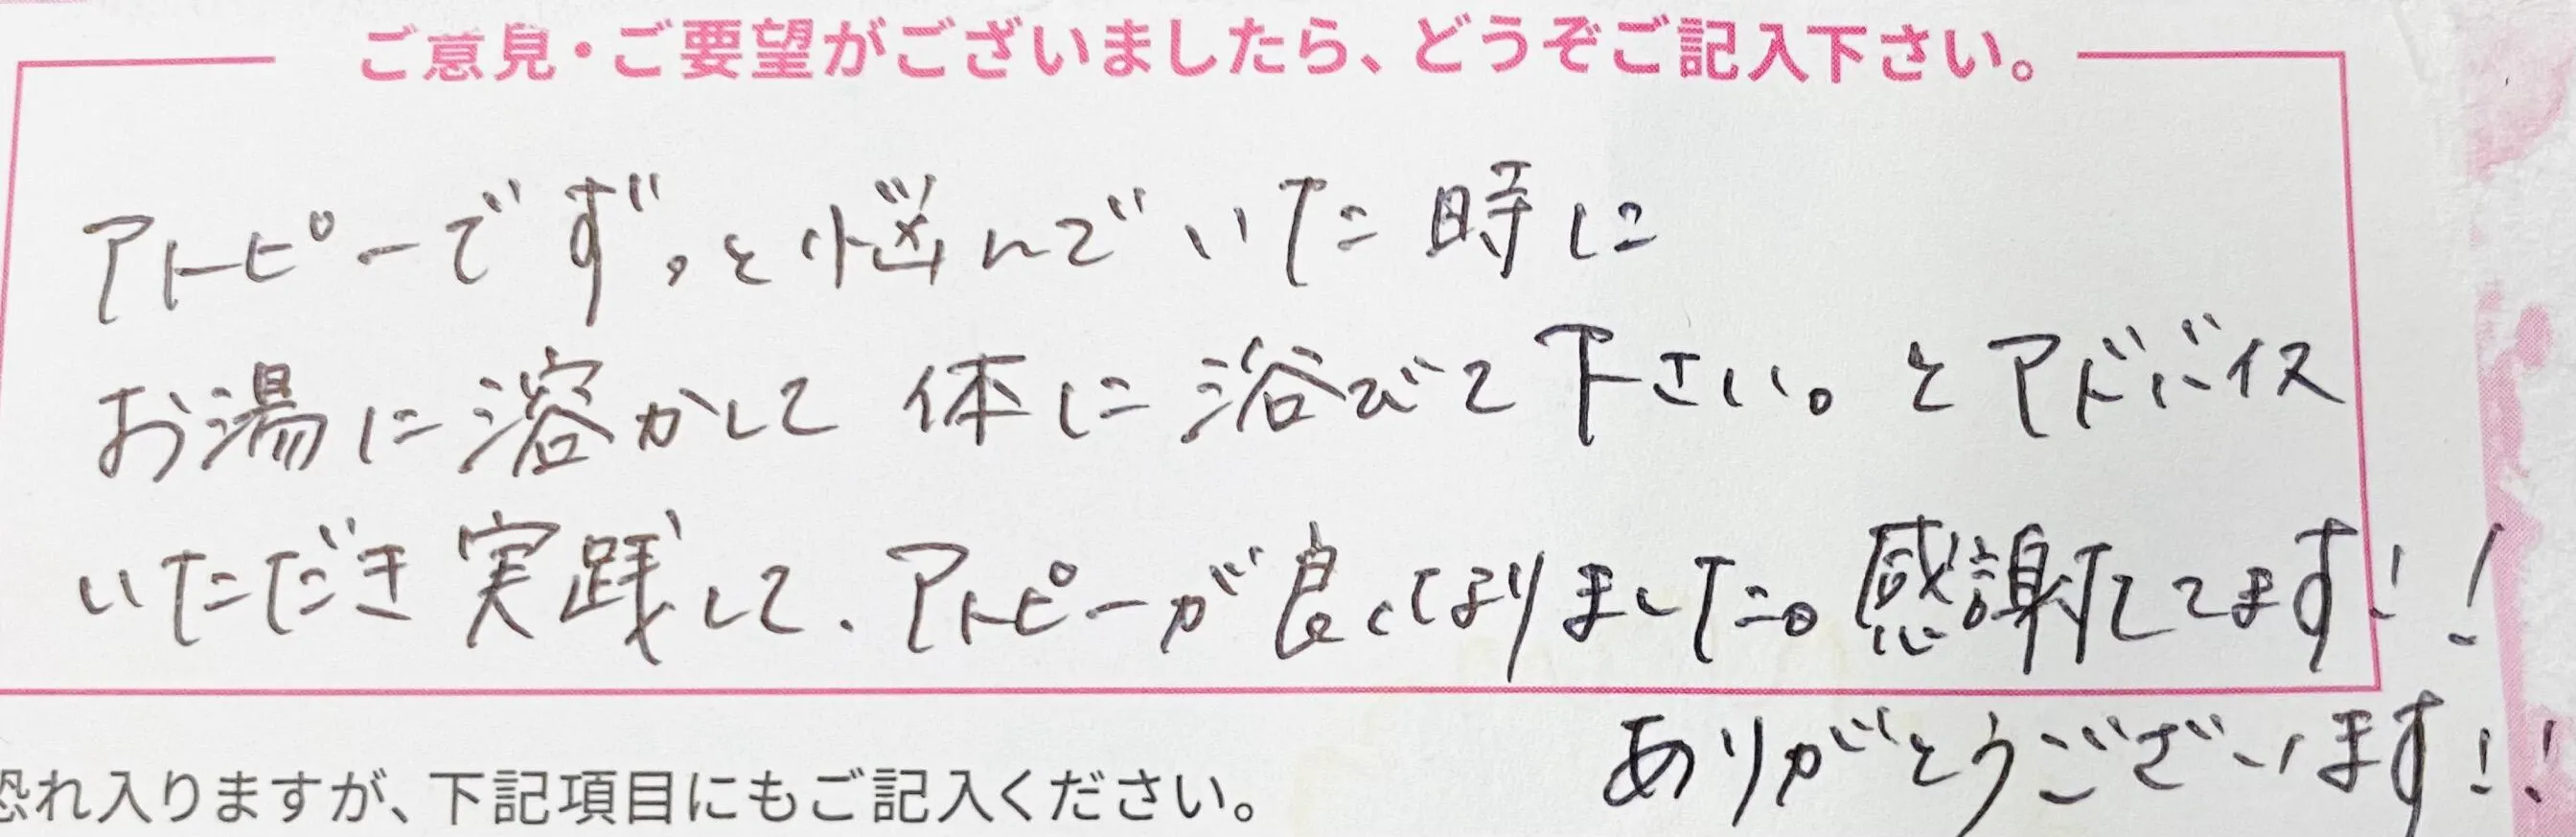 ご意見・ご要望がございましたら、どうぞご記入下さい。
アトピーでずっと悩んでいた時に
お湯に溶かして体に浴びて下さい。とアドバイス
いただき実践して、アトピーが良くなりました。感謝してます!!
ありがとうございます!!
恐れ入りますが、下記項目にもご記入ください。